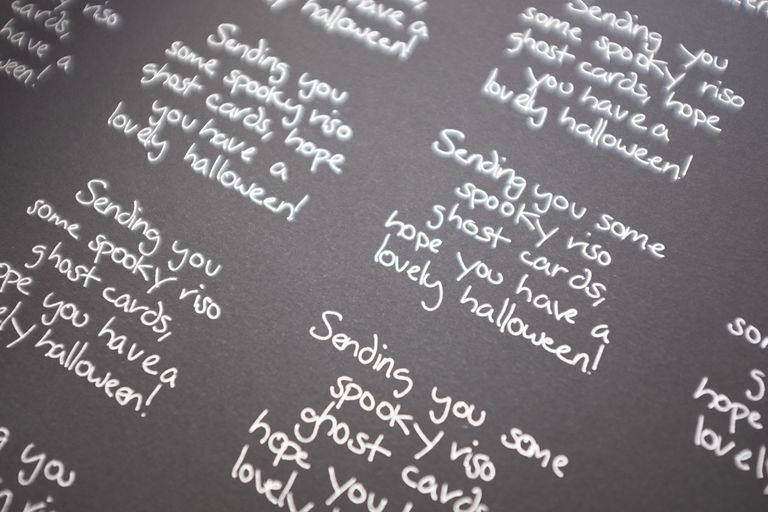 cards,
riso
have a
have a
halloween!
Sending you
some spooky riso
ghost cards, hope
you have a
lovely halloween!
Sending you
some spooky riso
ghost cards, hope
you have a
lovely halloween!
Sending you some
spooky riso
ghost cards,
hope you have a
lovely halloween!
Sending you
some spooky riso
ghost cards,
you have a
halloween!
Sending you some
spooky riso
ghost cards
hope you
lovely
hope
you